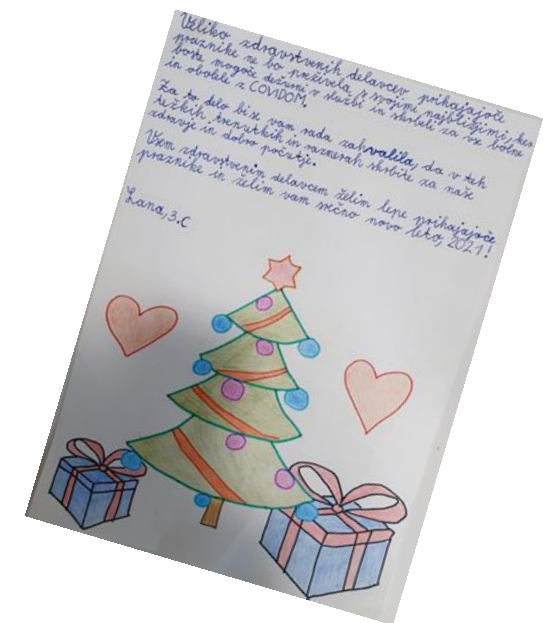 Veliko zdravstvenih delavcev prihajajoče
praznike ne bo preživela s svojimi najbližjimi, ker
boste mogoče dežurni v službi in skrbeli za vse bolne
in obolele z COVIDOM.
Za to delo bi se vam rada zahvalila, da v teh
težkih trenutkih in razmerah skrbite za naše
zdravje in dobro počutje.
Vsem zdravstvenim delavcem želim lepe prihajajoče
praznike in želim vam srečno novo leto, 2021!
Lana, 3.C